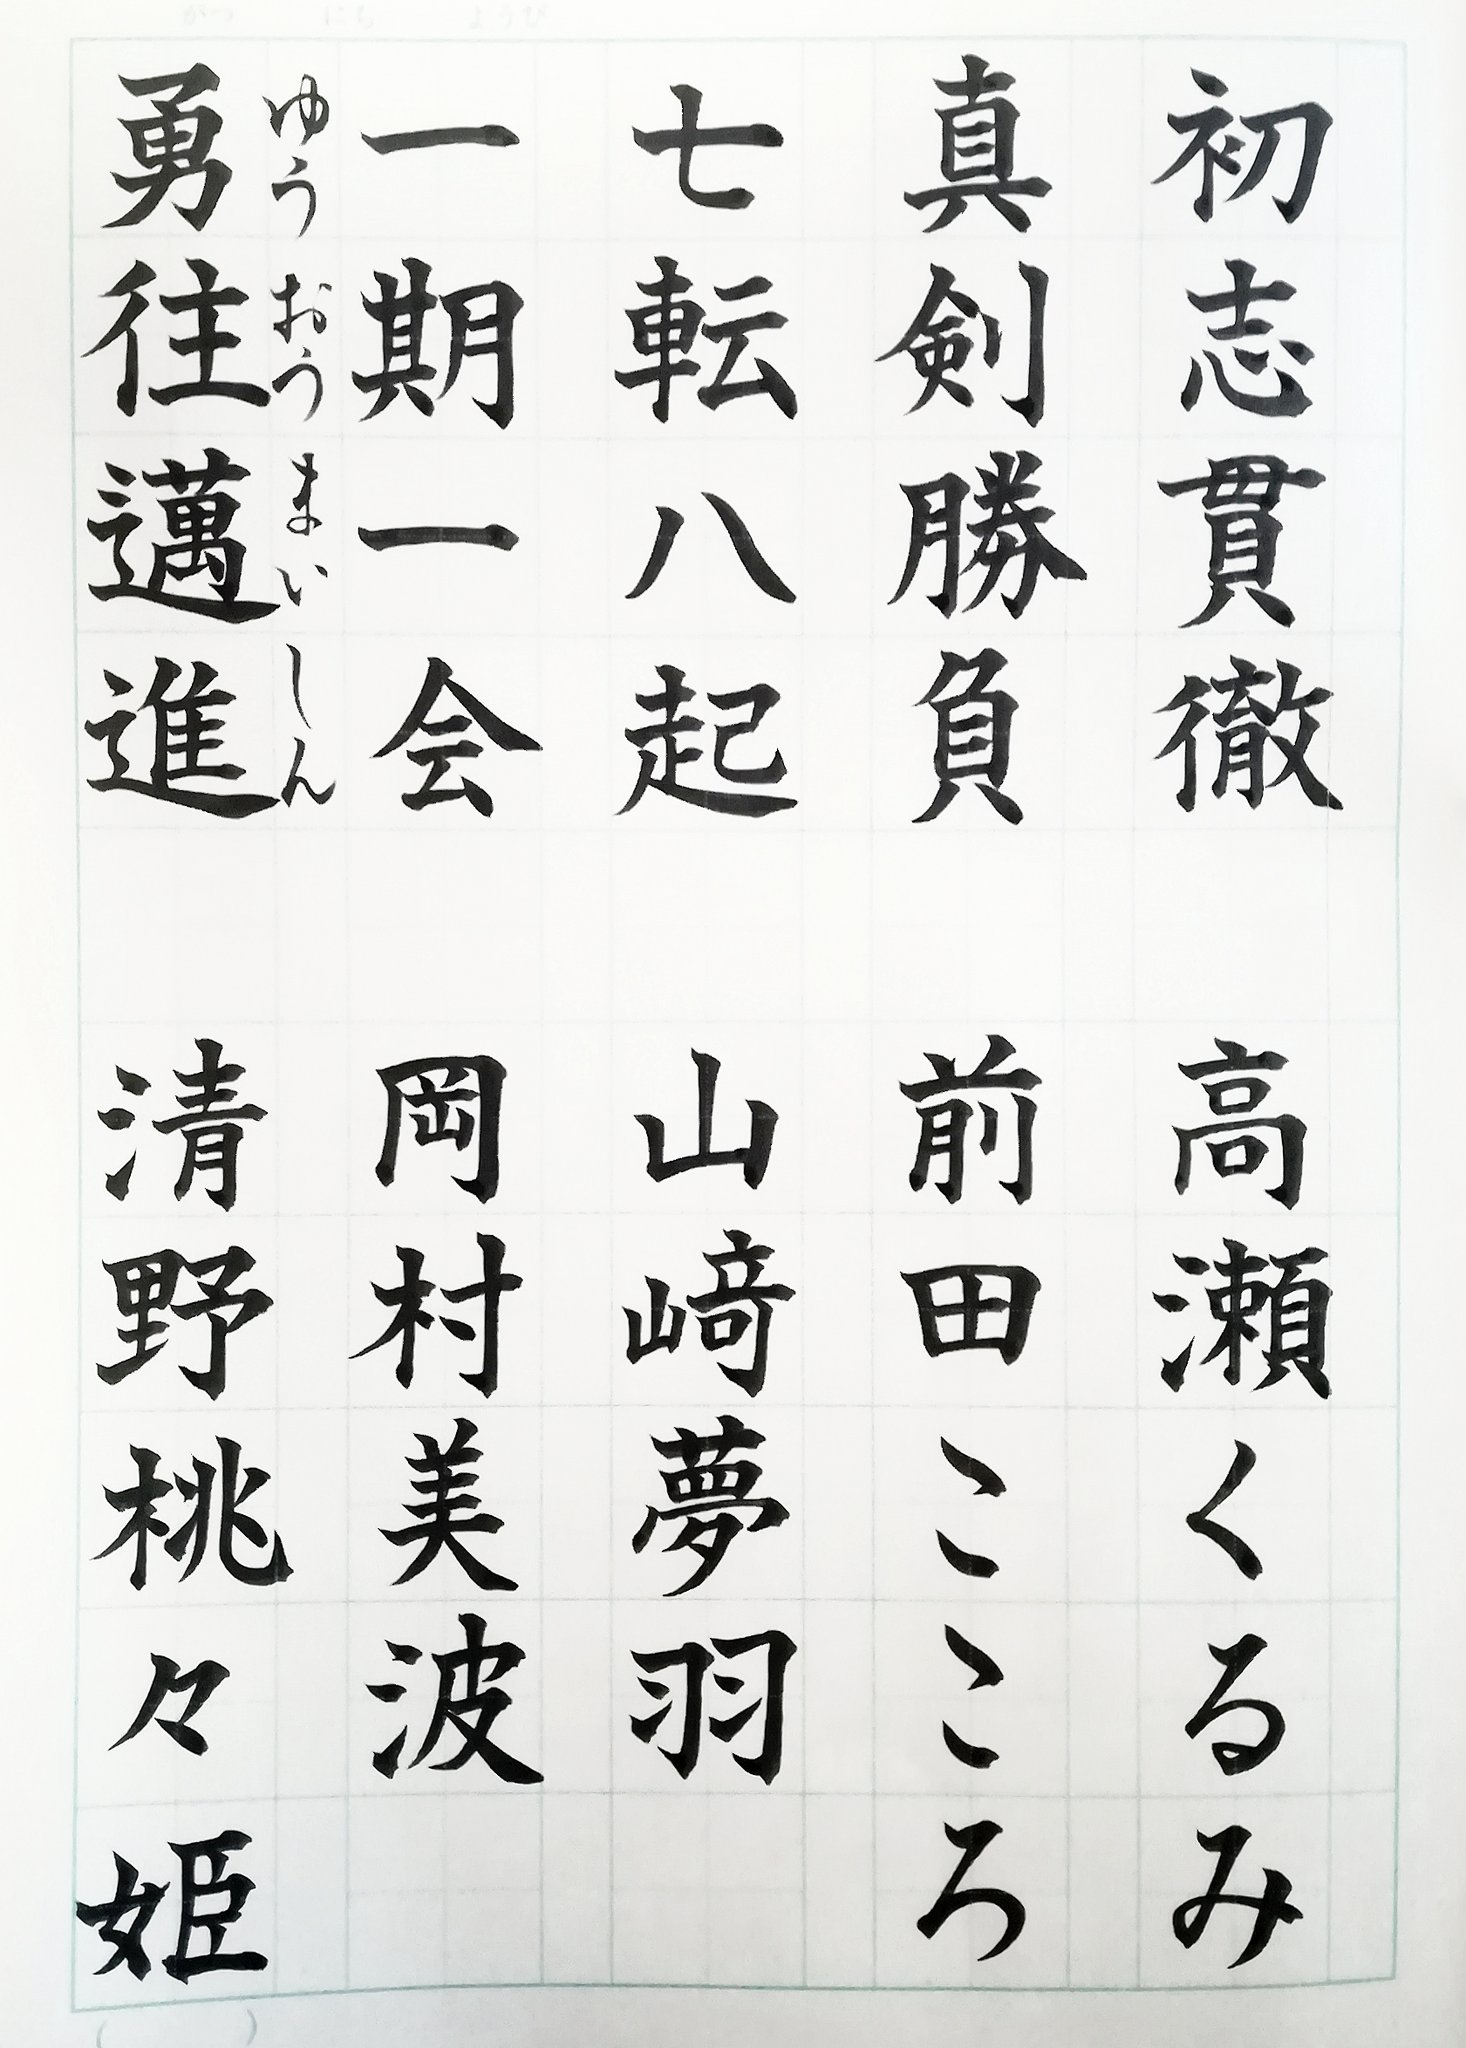 初志貫徹 高瀬くるみ
真剣勝負 前田こころ
七転八起 山﨑夢羽
一期一会 岡村美波
ゆうおうまいしん
勇往邁進 清野桃々姫
がつ にち ようび